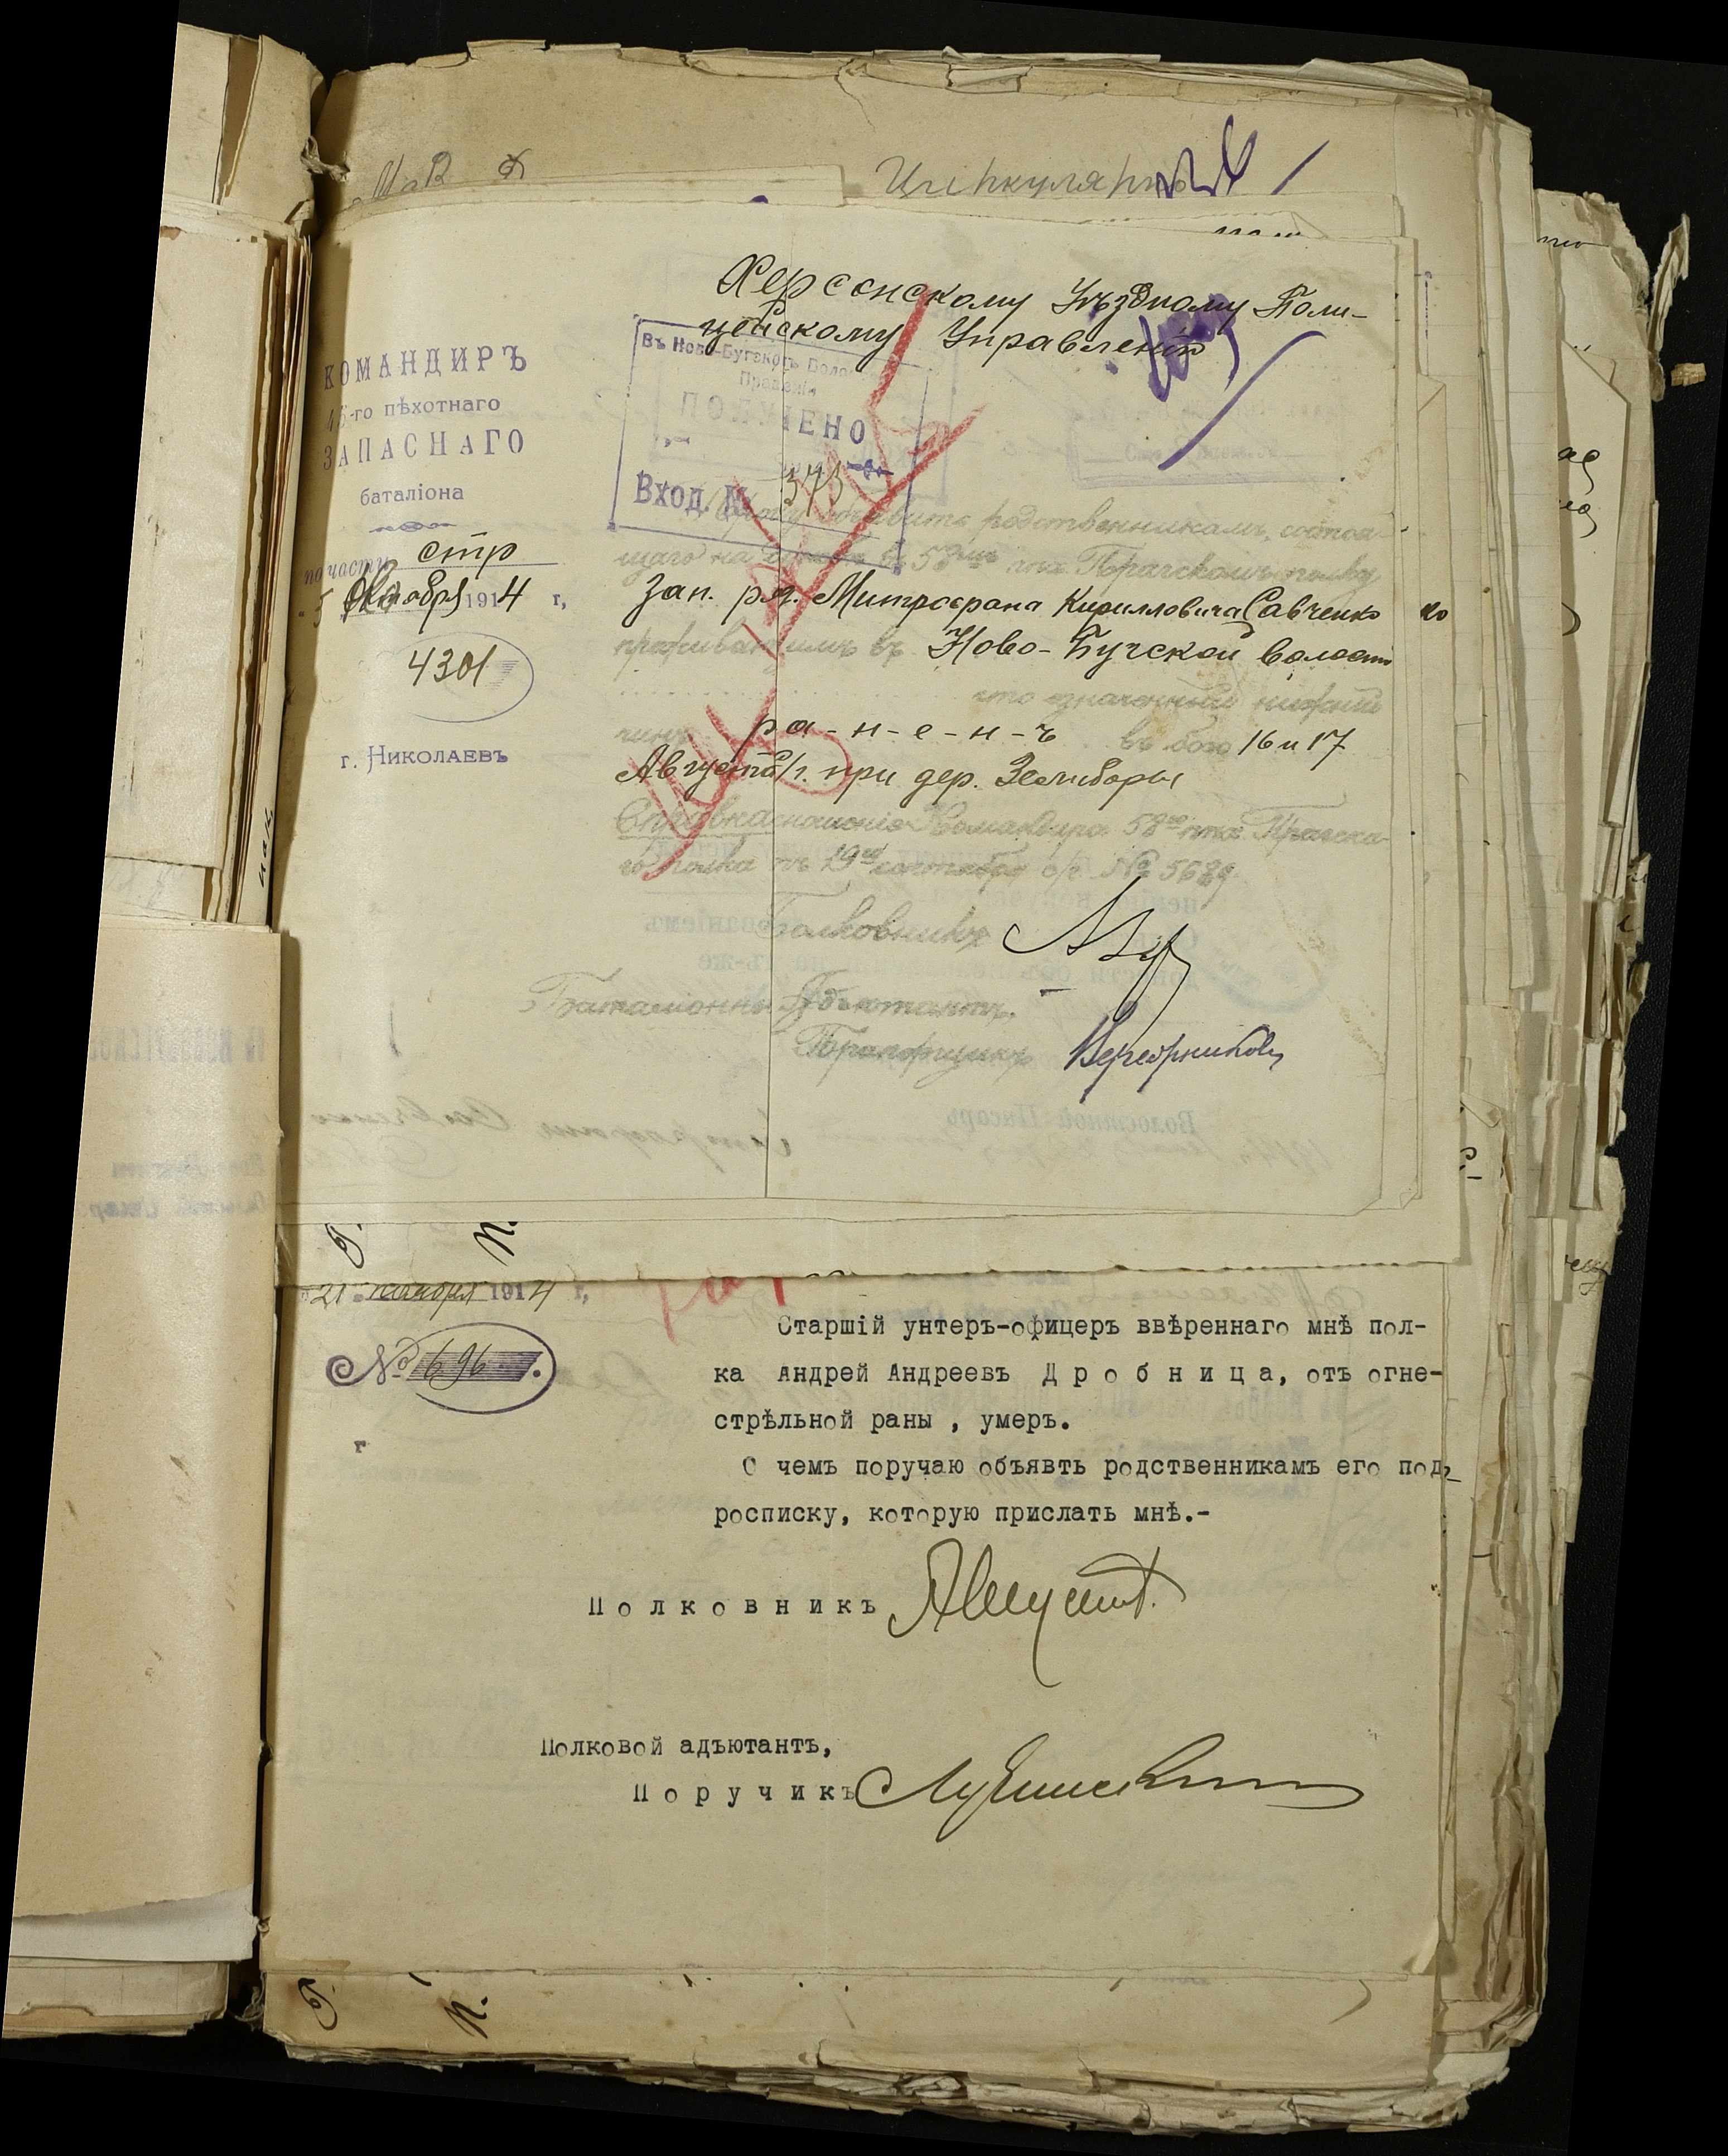 Циркулярно
Херсонскому Уѣздному Поли-
цейскому Управленію
КОМАНДИРЪ
45-го пѣхотнаго
ЗАПАСНАГО
баталіона
по части стр
5 Октября 1914 г,
4301
г. Николаевъ
Въ Ново-Бугском Волос
Правленіи
ПОЛУЧЕНО
Вход. №
Прошу объявить родственникамъ, состоя-
щаго на службѣ въ 58мъ пѣх. Прагскомъ полку
Зап. ряд. Митрофана Кирилловича Савченко
проживающимъ въ Ново-Бугской волости
что означенный нижній
чинъ р а - н - е - н - ъ въ бою 16 и 17
Августа с/г. при дер. Зелиборы
Справка: сношеніе Командира 58го пѣх. Прагска-
го полка отъ 19го сентября с/г. № 5689
Полковникъ
Баталіонный Адъютантъ,
Прапорщикъ
21 ноября 1914 г,
№ 696.
г
Старшій унтеръ-офицеръ ввѣреннаго мнѣ пол-
ка Андрей Андреевъ Д р о б н и ц а, отъ огне-
стрѣльной раны , умеръ.
О чемъ поручаю объявть родственникамъ его под-
росписку, которую прислать мнѣ.-
П о л к о в н и к ъ
Полковой адъютантъ,
П о р у ч и к ъ